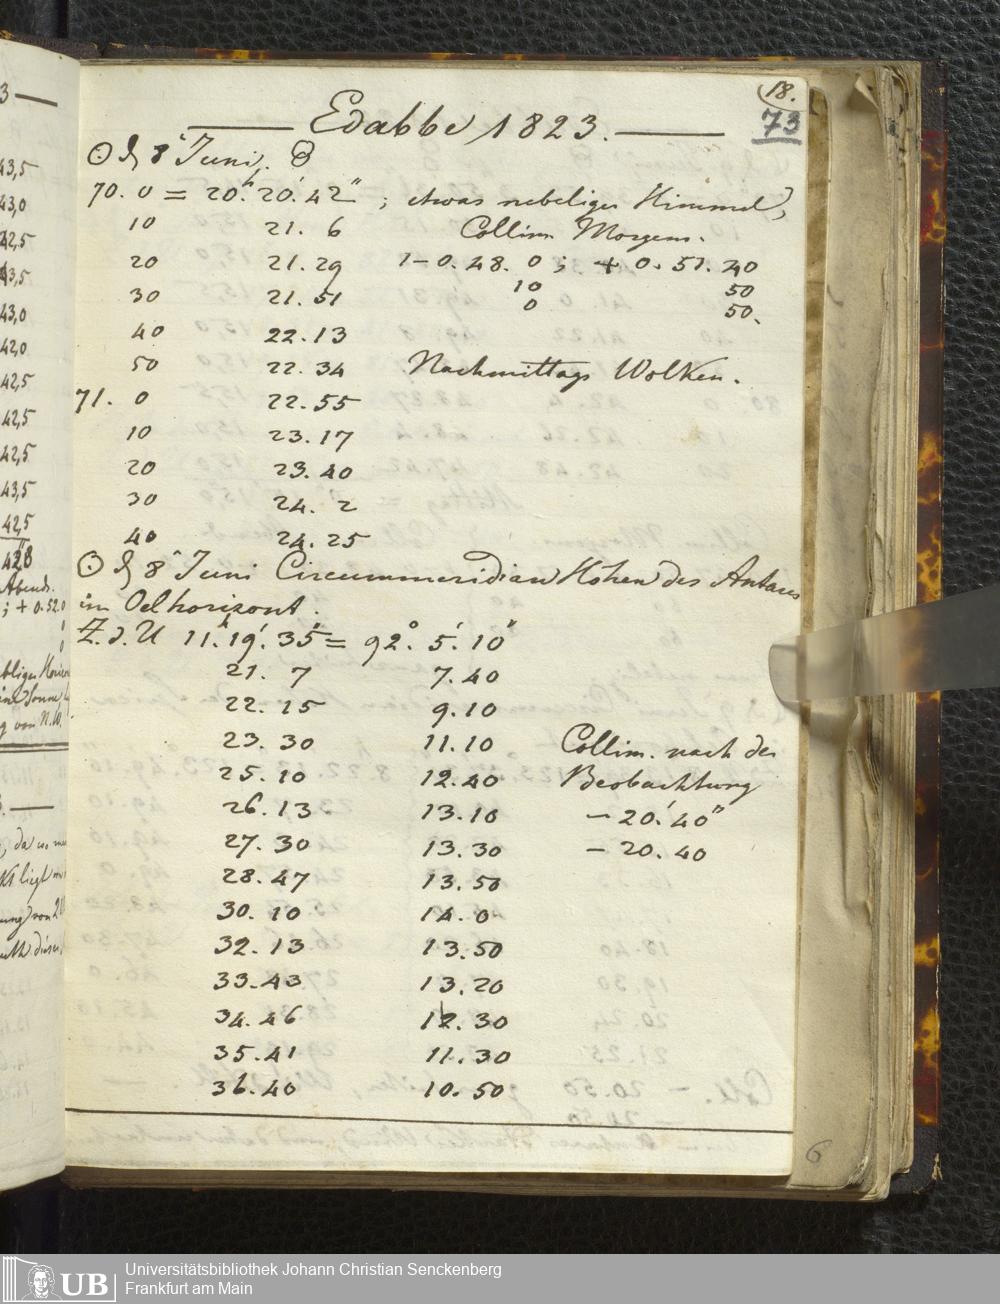 18.
73
Edabbe 1823.
☉ d 8 Juni.
70. 0 = 20h. 20'. 42" ; etwas nebeliger Himmel,
10 21. 6 Collim Morgens.
20 21. 29 1 - 0. 48. 0 ; + 0. 51. 40
30 21. 51 10 50
0 50.
40 22. 13
50 22. 34 Nachmittags Wolken.
71. 0 22. 55
10 23. 17
20 23. 40
30 24. 2
40 24. 25
☉ d 8 Juni Circummeridian Höhen des Antares
im Oelhorizont.
Z. d. U 11h. 19'. 35" = 92° 5' 10"
21. 7 7. 40
22. 15 9. 10
23. 30 11. 10 Collim. nach der
25. 10 12. 40 Beobachtung
26. 13 13. 10 - 20' 40"
27. 30 13. 30 - 20. 40
28. 47 13. 50
30. 10 14. 0
32. 13 13. 50
33. 43 13. 20
34. 46 12. 30
35. 41 11. 30
36. 40 10. 50
6
3
43,5
43,0
42,5
43,5
43,0
42,0
42,5
42,5
42,5
43,5
42,5
Abends.
; + 0. 52. 0
von N.W.
da
liegt
UB Universitätsbibliothek Johann Christian Senckenberg
Frankfurt am Main